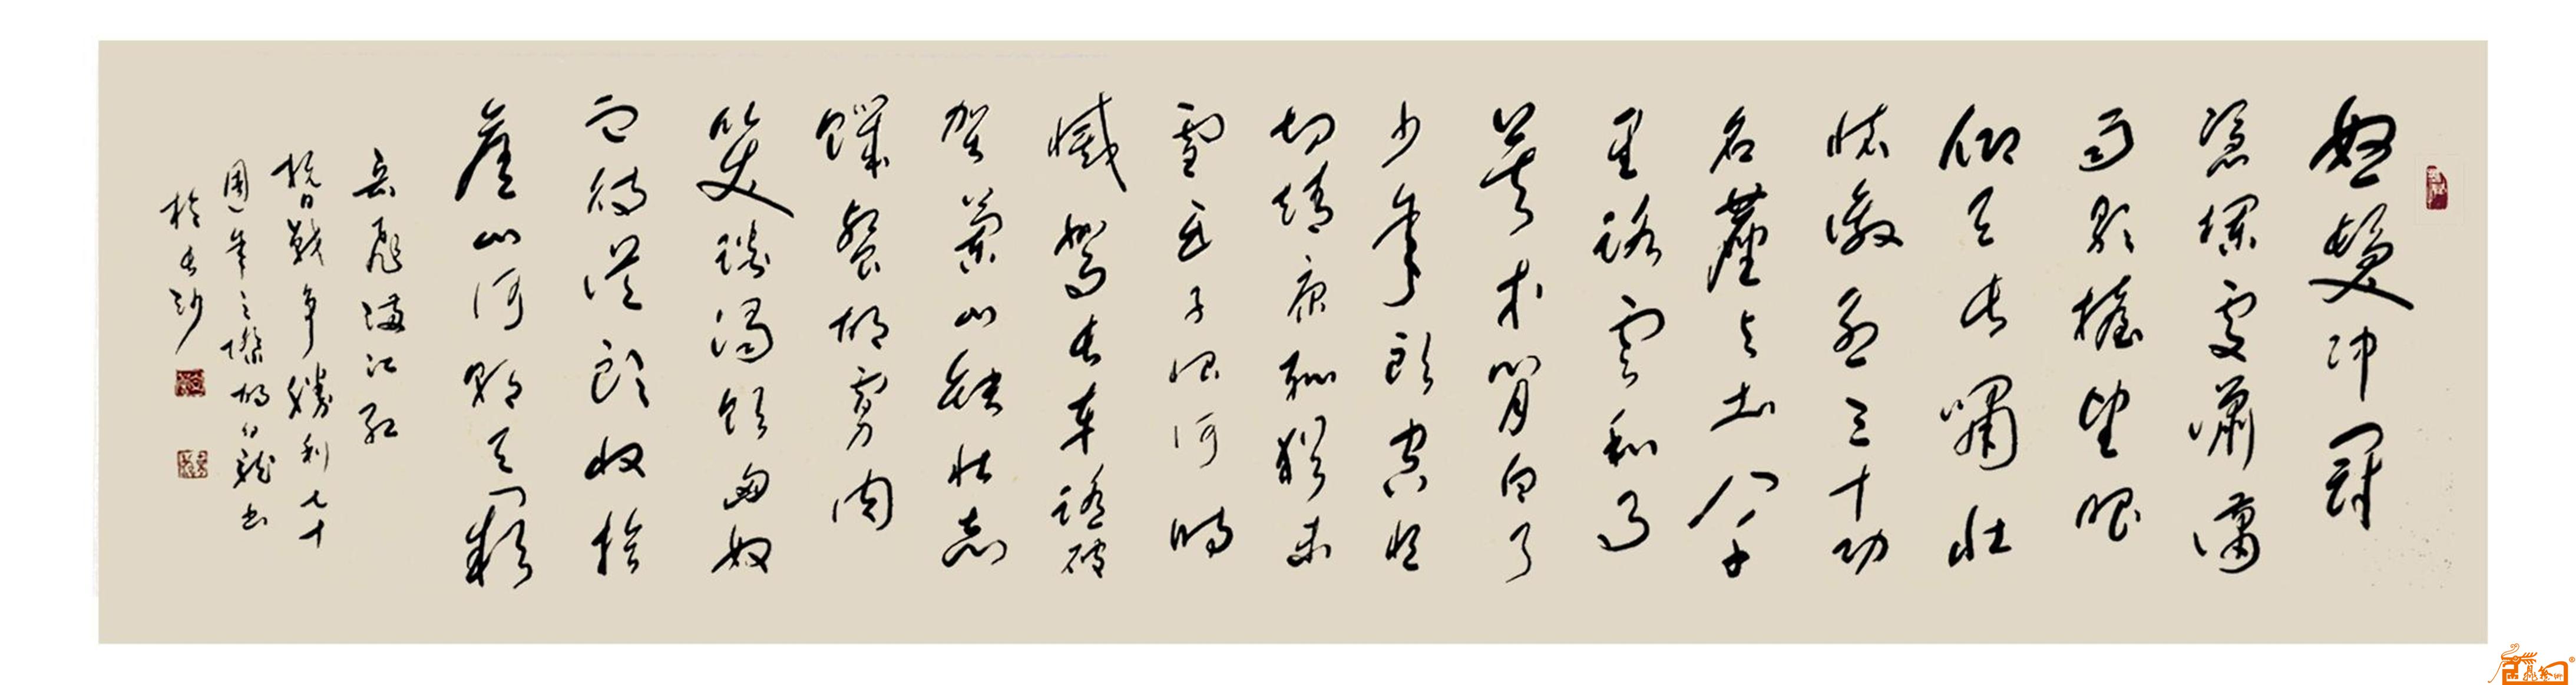 怒髮冲冠
憑欄處瀟瀟
雨歇擡望眼
仰天長嘯壯
懷激烈三十功
名塵與土八千
里路雲和月
莫等閒白了
少年頭空悲
切靖康耻猶未
雪臣子恨何時
憾駕長車踏破
賀蘭山缺壯志
饑餐胡虜肉
笑談渴飲匈奴
血待從頭收拾
舊山河朝天闕
岳飛滿江紅
抗日戰爭勝利七十
週年之際龍書
於長沙